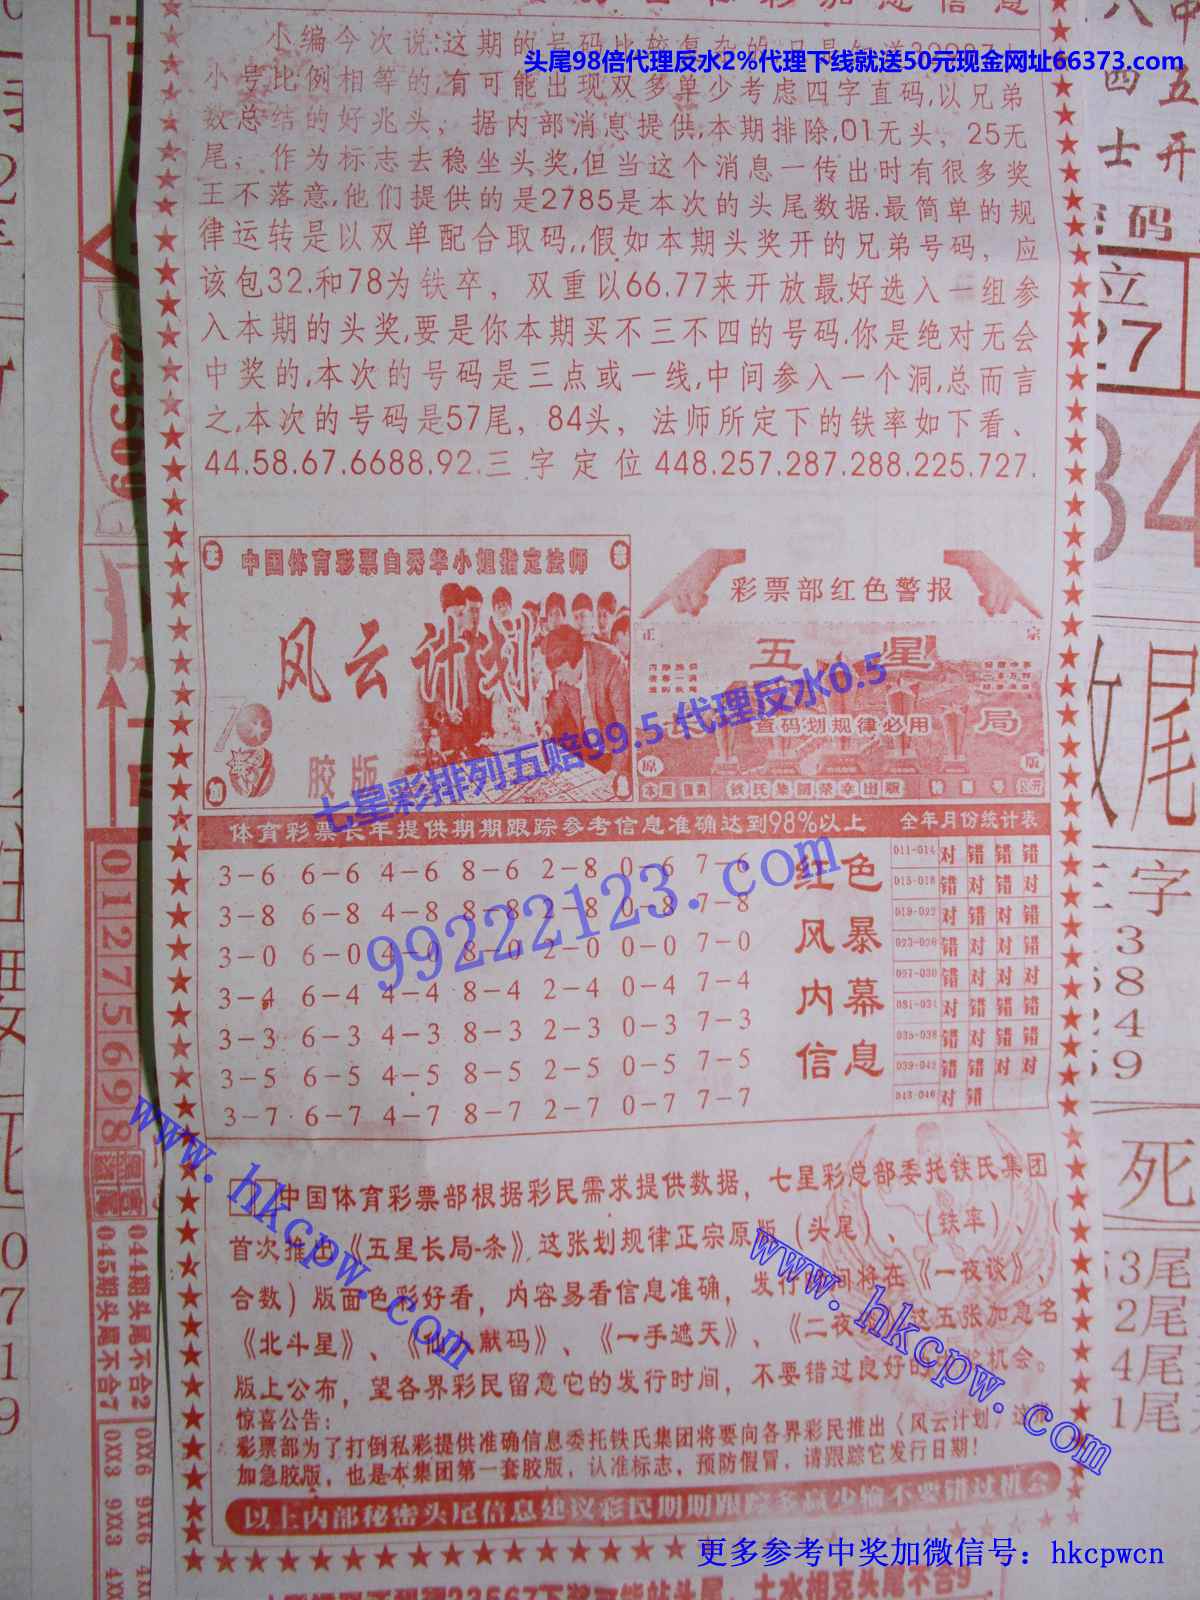 头尾98倍代理反水2%代理下线就送50元现金网址66373.com
小编今次说:这期的号码比较复杂的
小号比例相等的,有可能出现双多单少考虑四字直码,以兄弟
数总结的好兆头，据内部消息提供,本期排除,01无头，25无
尾，作为标志去稳坐头奖,但当这个消息一传出时有很多奖
王不落意,他们提供的是2785是本次的头尾数据.最简单的规
律运转是以双单配合取码,,假如本期头奖开的兄弟号码，应
该包32.和78为铁卒，双重以66.77来开放最好选入一组参
入本期的头奖,要是你本期买不三不四的号码.你是绝对无会
中奖的,本次的号码是三点或一线,中间参入一个洞,总而言
之,本次的号码是57尾，84头，法师所定下的铁率如下看、
44.58.67.6688.92.三字定位448.257.287.288.225.727.
正 中国体育彩票白秀华小姐指定法师
风云计划
胶版
加
彩票部红色警报
正 五星 宗
查码划规律必用 局
原 版
铁氏集团荣幸出版
七星彩排列五赔99.5 代理反水0.5
体育彩票长年提供期期跟踪参考信息准确达到98%以上 全年月份统计表
3-6 6-6 4-6 8-6 2-8 0-6 7-6
3-8 6-8 4-8 8-8 2-8 0-8 7-8
3-0 6-0 4-0 8-0 2-0 0-0 7-0
3-4 6-4 4-4 8-4 2-4 0-4 7-4
3-3 6-3 4-3 8-3 2-3 0-3 7-3
3-5 6-5 4-5 8-5 2-5 0-5 7-5
3-7 6-7 4-7 8-7 2-7 0-7 7-7
红色
风暴
内幕
信息
011-014 对 错 错 错
015-018 错 对 错 对
019-022 对 对 错 对
023-026 错 对 对 错
027-030 错 对 对 对
031-034 对 错 错 错
035-038 错 对 错 错
039-042 错 错 对 对
043-046 对 错
99222123.com
中国体育彩票部根据彩民需求提供数据，七星彩总部委托铁氏集团
首次推出《五星长局-条》这张划规律正宗原版（头尾）、（铁率）、（
合数）版面色彩好看，内容易看信息准确，发行时间将在《一夜谈》、
《北斗星》、《仙人献码》、《一手遮天》、《二夜 这五张加急名
版上公布，望各界彩民留意它的发行时间，不要错过良好的 机会。
惊喜公告:
彩票部为了打倒私彩提供准确信息委托铁氏集团将要向各界彩民推出《风云计划》这张
加急胶版，也是本集团第一套胶版，认准标志，预防假冒，请跟踪它发行日期!
以上内部秘密头尾信息建议彩民期期跟踪多赢少输不要错过机会
www.hkcpw.com
www.hkcpw.com
更多参考中奖加微信号：hkcpwcn
23567下奖可能站头尾 土水相克头尾不合9
23509
01275698
044期头尾不合2 0XX6 9XX6
045期头尾不合7 0XX3 9XX3
四 五
士 开
码
立
27
84
尾
字
死
3尾
2尾
4尾
1尾